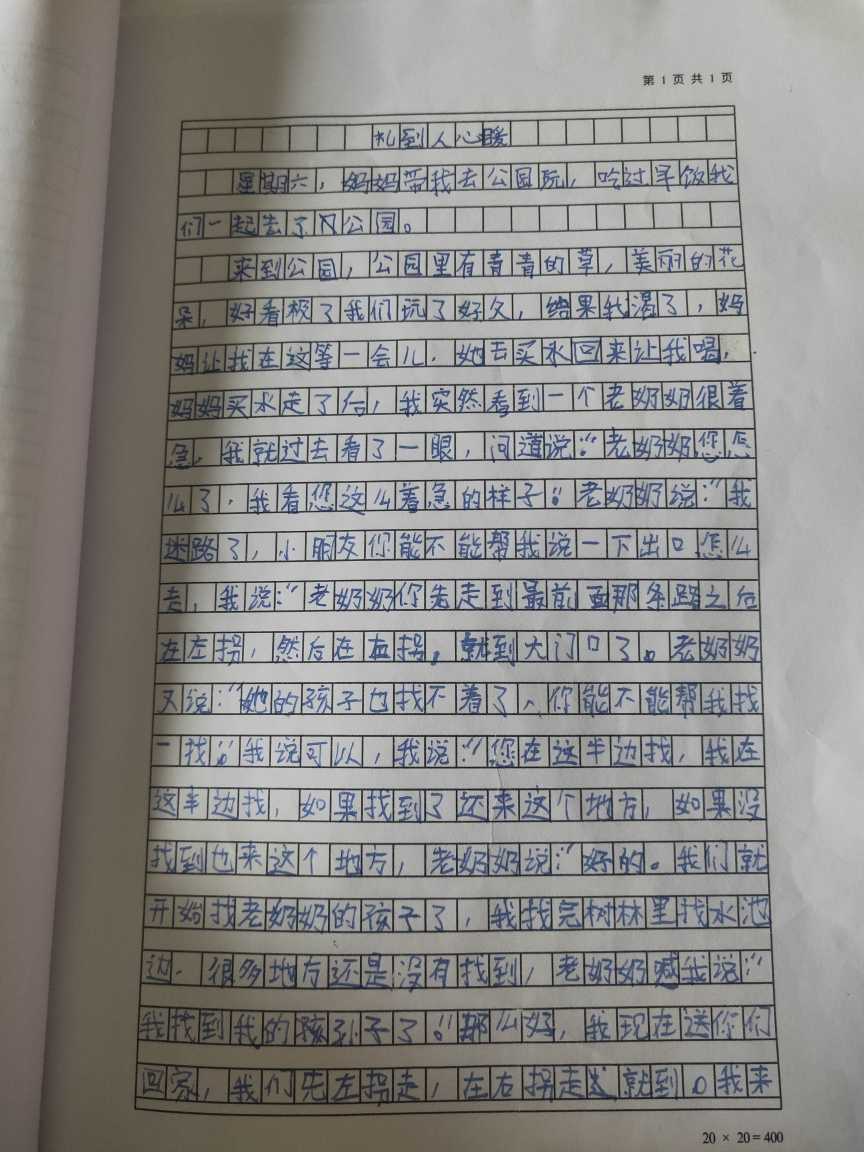 第 1 页 共 1 页
礼到人心暖
星期六，妈妈带我去公园玩，吃过早饭我
们一起去了公园。
来到公园，公园里有青青的草，美丽的花
朵，好看极了我们玩了好久，结果我渴了，妈
妈让我在这等一会儿．她去买水回来让我喝，
妈妈买水走了后，我突然看到一个老奶奶很着
急．我就过去看了一眼，问道说：“老奶奶您怎
么了，我看您这么着急的样子”。老奶奶说：“我
迷路了，小朋友你能不能帮我说一下出口怎么
走，我说：“老奶奶你先走到最前面那条路之后
在左拐，然后在右拐。就到大门口了。老奶奶
又说：“她的孩子也找不着了、你能不能帮我找
一找”。我说可以，我说：“您在这半边找，我在
这半边找，如果找到了还来这个地方，如果没
找到也来这个地方，老奶奶说：“好的。我们就
开始找老奶奶的孩子了，我找完树林里找水池
边．很多地方还是没有找到，老奶奶喊我说：“
我找到我的孩子了”。那么好，我现在送你们
回家，我们先左拐走，在右拐走就到。我来
20 × 20=400